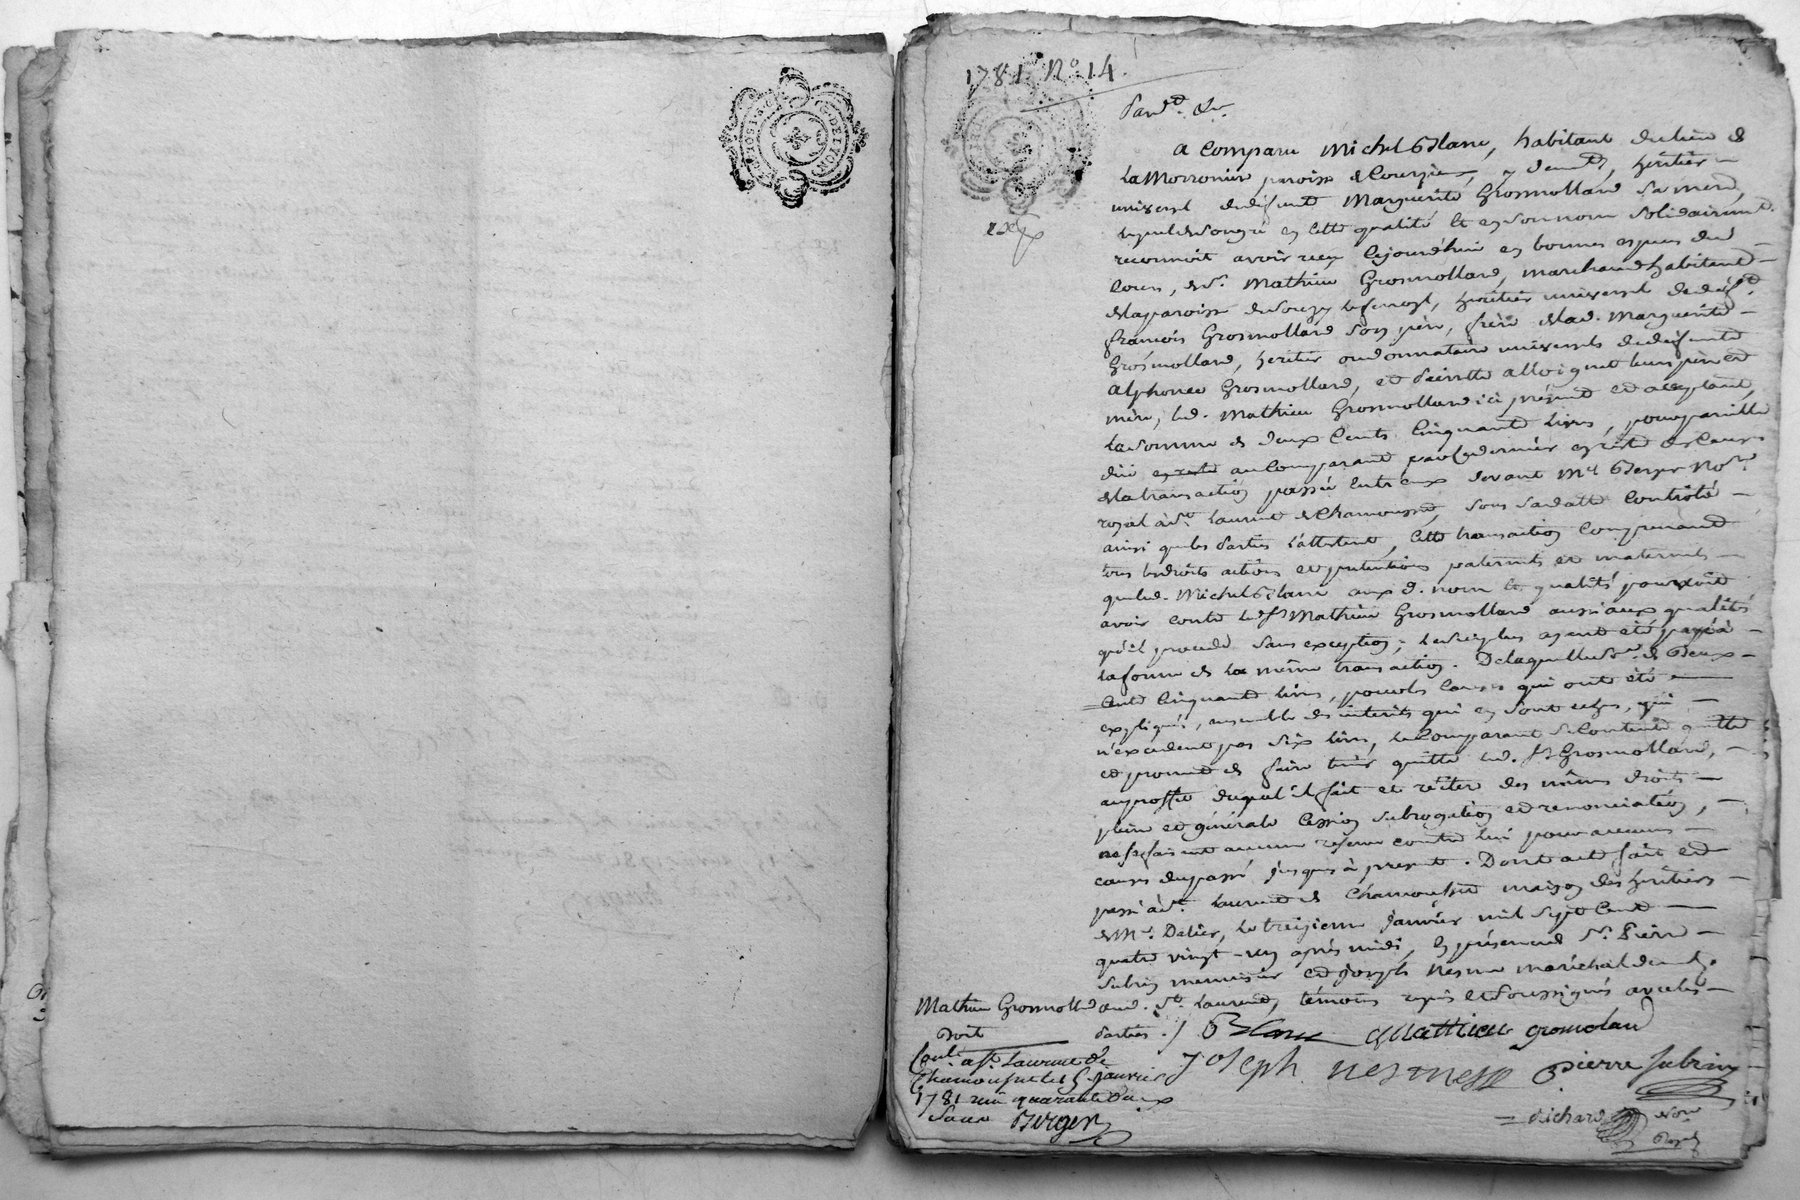 G. DE LYON
1781. No. 14.
Pard.t &c.
a comparu Michel Blanc, habitant du lieu de
la Morronier paroisse de Courzieu, y demt, heritier
universel de defunte Marguerite Grosmolland sa mere,
lequel de son gré en cette qualité et en son nom solidairement
reconnoit avoir reçu cejourd'hui en bonnes especes du
cours, de Sr. Mathieu Grosmolland, marchand habitant
de la paroisse de Souzy, heritier universel de deft
françois Grosmolland son pere, frere de lad. Marguerite
Grosmolland, heritier ou donnataire universels de defunts
Alphonce Grosmolland, et Pierrette alloignet leurs pere et
mere, led. Mathieu Grosmolland ici présent et acceptant,
la somme de deux cents cinquante livres, pour pareille
due au Comparant par ce dernier en reste des causes
de la transaction passée entr'eux devant Me Berger Nore
royal à St. Laurent de Chamousset, sous sa datte controlée
ainsi que les parties l'attestent, cette transaction comprenant
tous les droits actions et prétentions paternels et maternels
que led. Michel Blanc aux d. nom et qualités pouvoit
avoir contre led. Sr Mathieu Grosmolland aussi aux qualités
qu'il procede sans exception; le surplus ayant été payé à
la forme de la même transaction. De laquelle some de deux
cents cinquante livres, pour les causes qui ont été
expliqués, ensemble des interets qui en sont echus, qui
n'excedent pas six livres, le Comparant se contente quitte
et promet de faire tenir quitte led. Sr Grosmolland,
au proffit duquel il fait et réitere des mêmes droits
pleine et générale cession subrogation et renonciation,
ne se faisant aucune reserve contre lui pour aucunes
causes du passé jusques à present. Dont acte fait et
passé à St. Laurent de Chamousset maison des heritiers
de Me. Dalier, le treizieme janvier mil sept cent
quatre vingt-un après midi, en présence de Sr. Pierre
Subrin menuisier et Joseph Nesme maréchal demt.
aud. St. Laurent, témoins requis et soussignés avec les
parties./.
Blanc Mathieu gromoland
Joseph nesme Pierre subrin
Richard Nore
Royal
Mathieu Grosmolland
Doit
Conlé à St. Laurent de
Chamousset le janvier
1781 reçu quarante deux
sous Berger